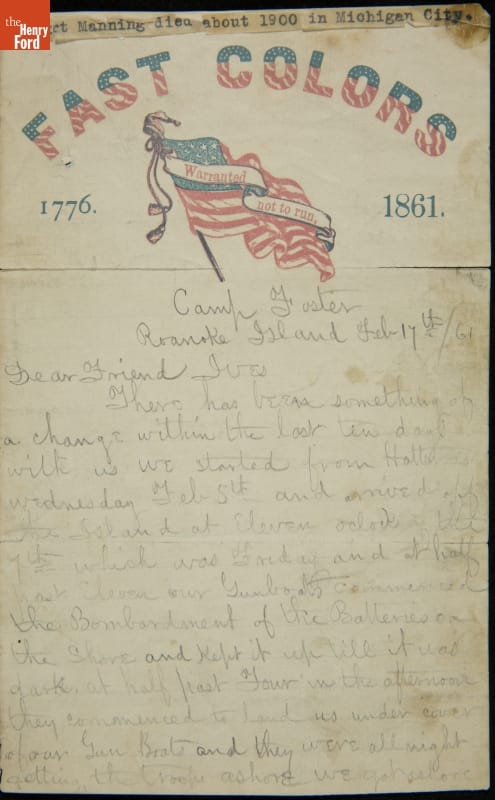 the
Henry
Ford
rt Manning died about 1900 in Michigan City.
FAST COLORS
Warranted
not to run.
1776.
1861.
Camp Foster
Roanoke Island Feb 17th/61
Dear Friend Ives
There has been something of
a change within the last ten days
with us we started from
Wednesday Feb 5th and arrived off
the Island at Eleven oclock the
7th which was Friday and at half
past Eleven our Gunboats commenced
the Bombardment of the Batteries on
the Shore and kept it up till it was
dark, at half past Four in the afternoon
they commenced to land us under cover
of our Gun Boats and they were all night
getting the troops ashore we got ashore